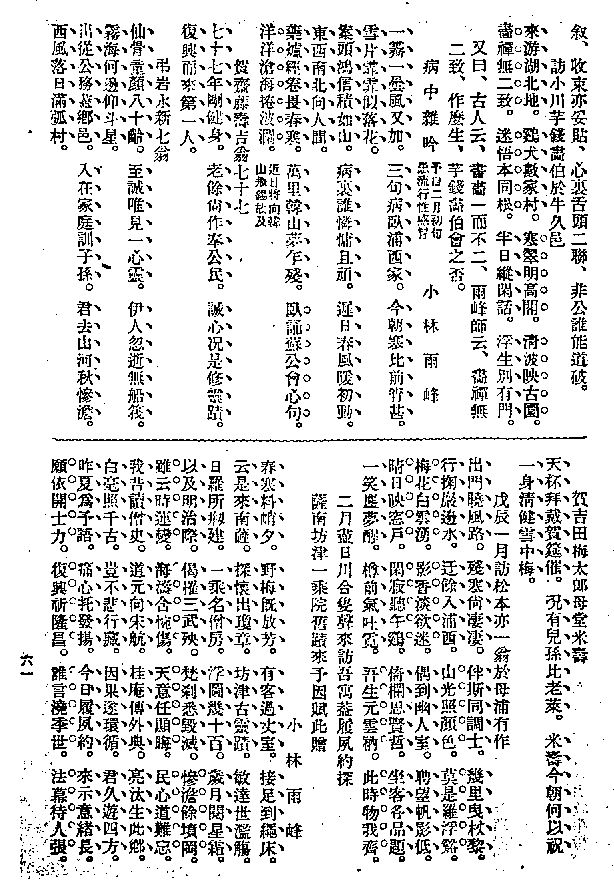 敍、收束亦妥貼、心裏舌頭二聯、非公誰能道破。
訪小川芋錢畵伯於牛久邑
來游湖北地。鷄犬數家村。寒翠明高閣。清波映古園。
畵禪無二致。迷悟本同根。半日縱閑話。浮生別有門。
又曰、古人云、書畵一而不二、雨峰師云、畵禪無
二致、作麼生、芋錢畵伯會之否。
病中雜吟 小林雨峰
一霽一曇風又加。三旬病臥浦西家。今朝寒比前宵甚。
雪片霏霏似落花。
案頭鴻信積如山。病裏誰憐慵且頑。遲日春風暖初動。
東西南北向人間。
藥爐經卷畏春寒。萬里韓山夢乍殘。臥誦蘇公會心句。
洋洋滄海捲波瀾。
賀齋藤壽吉翁七十七
七十七年剛健身。老餘尚作奉公民。誠心况是修靈蹟。
復興而來第一人。
弔岩永新七翁
仙骨童顏八十齡。至誠唯見一心靈。伊人忽逝無船筏。
霧海何邊仰斗星。
出從公務盡鄉邑。入在家庭訓子孫。君去山河秋慘澹。
西風落日滿孤村。
賀吉田梅太郎母堂米壽
天杯拜戴賀筵催。况有兒孫比老萊。米壽今朝何以祝
一身清健雪中梅。
戊辰一月訪松本亦一翁於母浦有作
出門曉風路。殘寒尚凄凄。伴斯同調士。幾里曳杖黎。
行搊巖邊水。迂餘入浦西。山光照顏色。莫是羅浮谿。
梅花白雲湧。影香淡欲迷。偶到幽人室。聘望帆影低。
晴日映窓戶。閑寂聽午鷄。倚欄思賢哲。坐客各品題。
一笑塵夢醒。樽前氣吐霓。吾生元雲衲。此時物我齊。
二月壹日川合隻幹來訪吾寓盖履夙約探
薩南坊津一乘院舊蹟來予因賦此贈
小林雨峰
春寒料峭夕。野梅旣放芳。有客過丈室。接足到繩床。
云是來南薩。探懷出瓊章。坊津古靈蹟。敏達世濫觴。
日羅所刱建。一乘名僧房。浮圖幾十百。歲月閱星霜。
以及明治際。偈摧三武殃。梵刹悉毀滅。慘澹餘墳岡。
雖云時運變。海潮含惋傷。天意任顯晦。民心道難忘。
我昔讀僧史。道元向宋航。桂庵傳外典。亮汰生此鄉。
白毫照千古。豈不悲行藏。因果逐環循。君久遊四方。
昨夏爲予語。痛心托發揚。今日履夙約。來示意緒長。
願依開士力。復興祈隆昌。誰言澆季世。法幕待人張。
六一